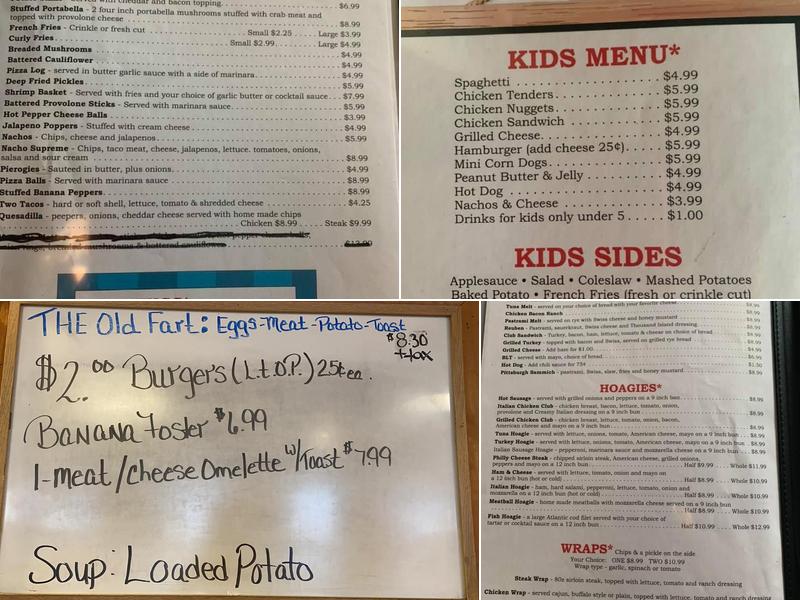 served with cheddar and bacon topping. $6.99
Stuffed Portabella - 2 four inch portabella mushrooms stuffed with crab meat and
topped with provolone cheese $8.99
French Fries - Crinkle or fresh cut Small $2.25 Large $3.99
Curly Fries Small $2.99 Large $4.99
Breaded Mushrooms $4.99
Battered Cauliflower $4.99
Pizza Log - served in butter garlic sauce with a side of marinara. $4.99
Deep Fried Pickles $5.99
Shrimp Basket - Served with fries and your choice of garlic butter or cocktail sauce $7.99
Battered Provolone Sticks - Served with marinara sauce. $5.99
Hot Pepper Cheese Balls $3.99
Jalapeno Poppers - Stuffed with cream cheese $4.99
Nachos - Chips, cheese and jalapenos $5.99
Nacho Supreme - Chips, taco meat, cheese, jalapenos, lettuce. tomatoes, onions,
salsa and sour cream $8.99
Pierogies - Sauteed in butter, plus onions. $4.99
Pizza Balls - Served with marinara sauce $8.99
Stuffed Banana Peppers $8.99
Two Tacos - hard or soft shell, lettuce, tomato & shredded cheese $4.25
Quesadilla - peepers, onions, cheddar cheese served with home made chips
Chicken $8.99 Steak $9.99
mushrooms & battered cauliflower
KIDS MENU*
Spaghetti $4.99
Chicken Tenders $5.99
Chicken Nuggets $5.99
Chicken Sandwich $5.99
Grilled Cheese $4.99
Hamburger (add cheese 25¢) $5.99
Mini Corn Dogs $5.99
Peanut Butter & Jelly $4.99
Hot Dog $4.99
Nachos & Cheese $3.99
Drinks for kids only under 5 $1.00
KIDS SIDES
Applesauce • Salad • Coleslaw • Mashed Potatoes
Baked Potato • French Fries (fresh or crinkle cut)
THE Old Fart: Eggs-Meat-Potato-Toast
$8.30
+tax
$2.00 Burgers (L.t.O.P.) 25¢ea.
Banana Foster $6.99
1-meat/Cheese Omelette w/Toast $7.99
Soup: Loaded Potato
Tuna Melt - served on your choice of bread with your favorite cheese
Chicken Bacon Ranch
Pastrami Melt - served on rye with Swiss cheese and honey mustard
Reuben - Pastrami, sauerkraut, Swiss cheese and Thousand Island dressing
Club Sandwich - Turkey, bacon, ham, lettuce, tomato & cheese on choice of bread
Grilled Turkey - topped with bacon and Swiss, served on grilled rye bread $8.99
Grilled Cheese - Add base for $1.00 $4.99
BLT - served with mayo, choice of bread $6.99
Hot Dog - Add chili sauce for 75¢ $1.50
Pittsburgh Sammich - pastrami, Swiss, slaw, fries and honey mustard $8.99
HOAGIES*
Hot Sausage - served with grilled onions and peppers on a 9 inch bun $8.99
Italian Chicken Club - chicken breast, bacon, lettuce, tomato, onion,
provolone and Creamy Italian dressing on a 9 inch bun $8.99
Grilled Chicken Club - chicken breast, lettuce, tomato, onion, bacon,
American cheese and mayo on a 9 inch bun $8.99
Tuna Hoagie - served with lettuce, onions, tomato, American cheese, mayo on a 9 inch bun $8.99
Turkey Hoagie - served with lettuce, onions, tomato, American cheese, mayo on a 9 inch bun $8.99
Italian Sausage Hoagie - peppers, marinara sauce and mozzarella cheese on a 9 inch bun $8.99
Philly Cheese Steak - chipped sirloin steak, American cheese, grilled onions,
peppers and mayo on a 12 inch bun Half $9.99 Whole $11.99
Ham & Cheese - served with lettuce, tomato, onion and mayo on
a 12 inch bun (hot or cold) Half $8.99 Whole $10.99
Italian Hoagie - ham, hard salami, pepperoni, lettuce, tomato, onion and
mozzarella on a 12 inch bun (hot or cold) Half $8.99 Whole $10.99
Meatball Hoagie - home made meatballs with mozzarella cheese served on a 9 inch bun
Half $8.99 Whole $10.99
Fish Hoagie - a large Atlantic cod filet served with your choice of
tartar or cocktail sauce on a 12 inch bun Half $10.99 Whole $12.99
WRAPS* Chips & a pickle on the side
Your Choice: ONE $8.99 TWO $10.99
Wrap type - garlic, spinach or tomato
Steak Wrap - 8oz sirloin steak, topped with lettuce, tomato and ranch dressing
Chicken Wrap - served cajun, buffalo style or plain, topped with lettuce, tomato